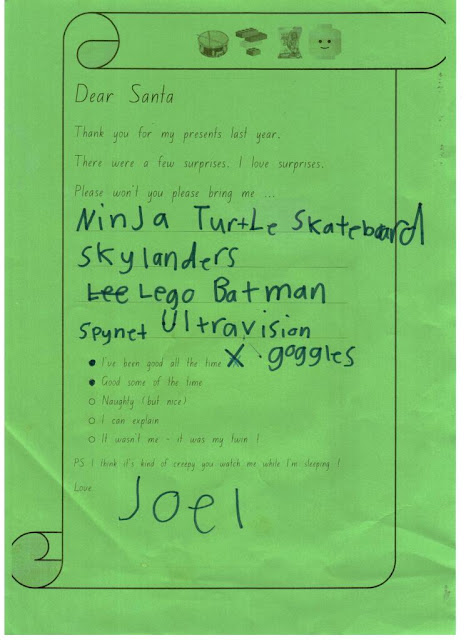 Dear Santa
Thank you for my presents last year.
There were a few surprises. I love surprises.
Please won't you please bring me ...
Ninja Turtle Skateboard
Skylanders
Lee Lego Batman
Spynet Ultravision
I've been good all the time X goggles
Good some of the time
Naughty (but nice)
I can explain
It wasn't me - it was my twin !
PS I think it's kind of creepy you watch me while I'm sleeping !
Love
Joel